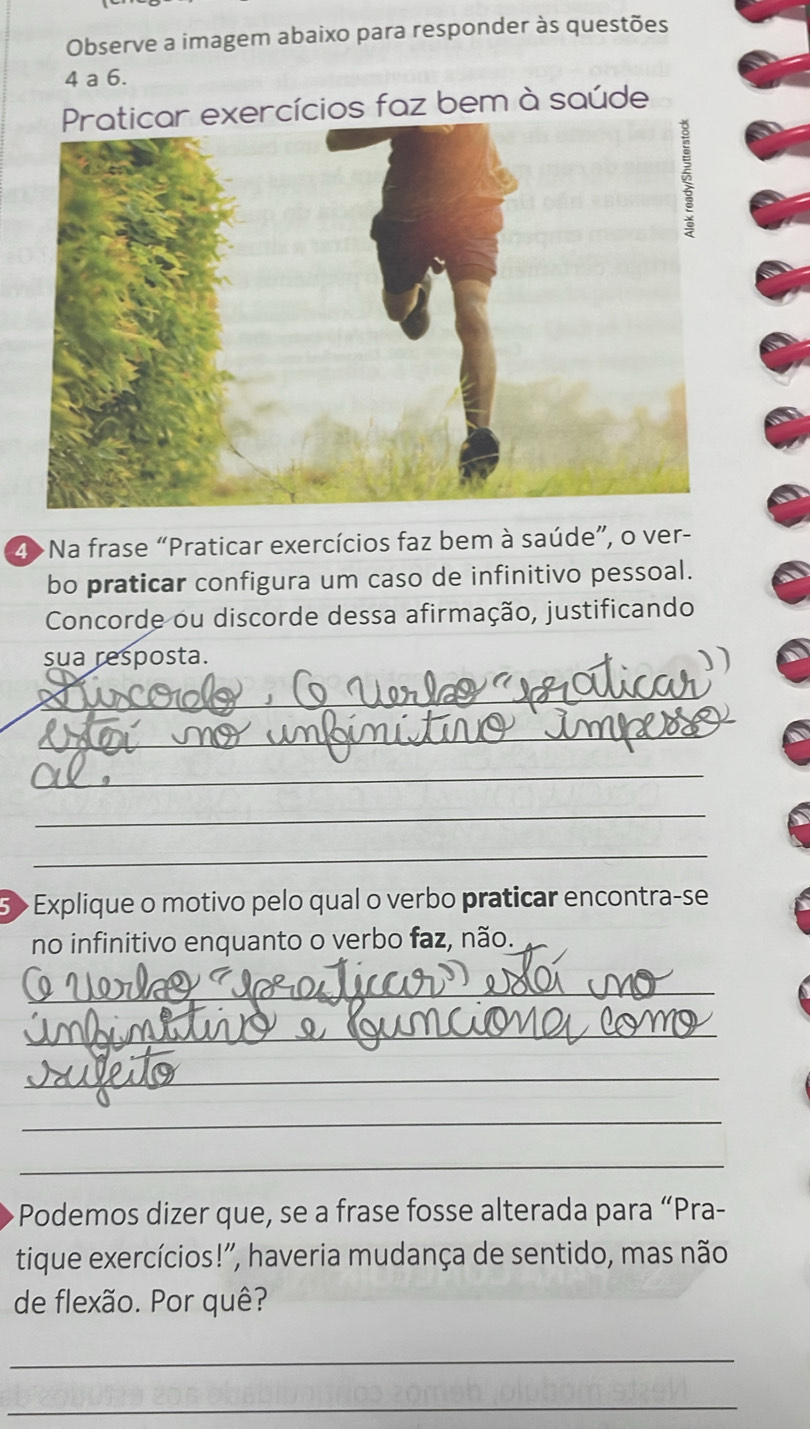 Observe a imagem abaixo para responder às questões
4 a 6.
Praticar exercícios faz bem à saúde
Alek ready/Shutterstock
4 Na frase “Praticar exercícios faz bem à saúde”, o ver-
bo praticar configura um caso de infinitivo pessoal.
Concorde ou discorde dessa afirmação, justificando
sua resposta.
Discordo, O verbo “praticar”
está no infinitivo impesso
al.
5 Explique o motivo pelo qual o verbo praticar encontra-se
no infinitivo enquanto o verbo faz, não.
O verbo “praticar” está no
infinitivo e funciona como
sujeito
Podemos dizer que, se a frase fosse alterada para “Pra-
tique exercícios!”, haveria mudança de sentido, mas não
de flexão. Por quê?